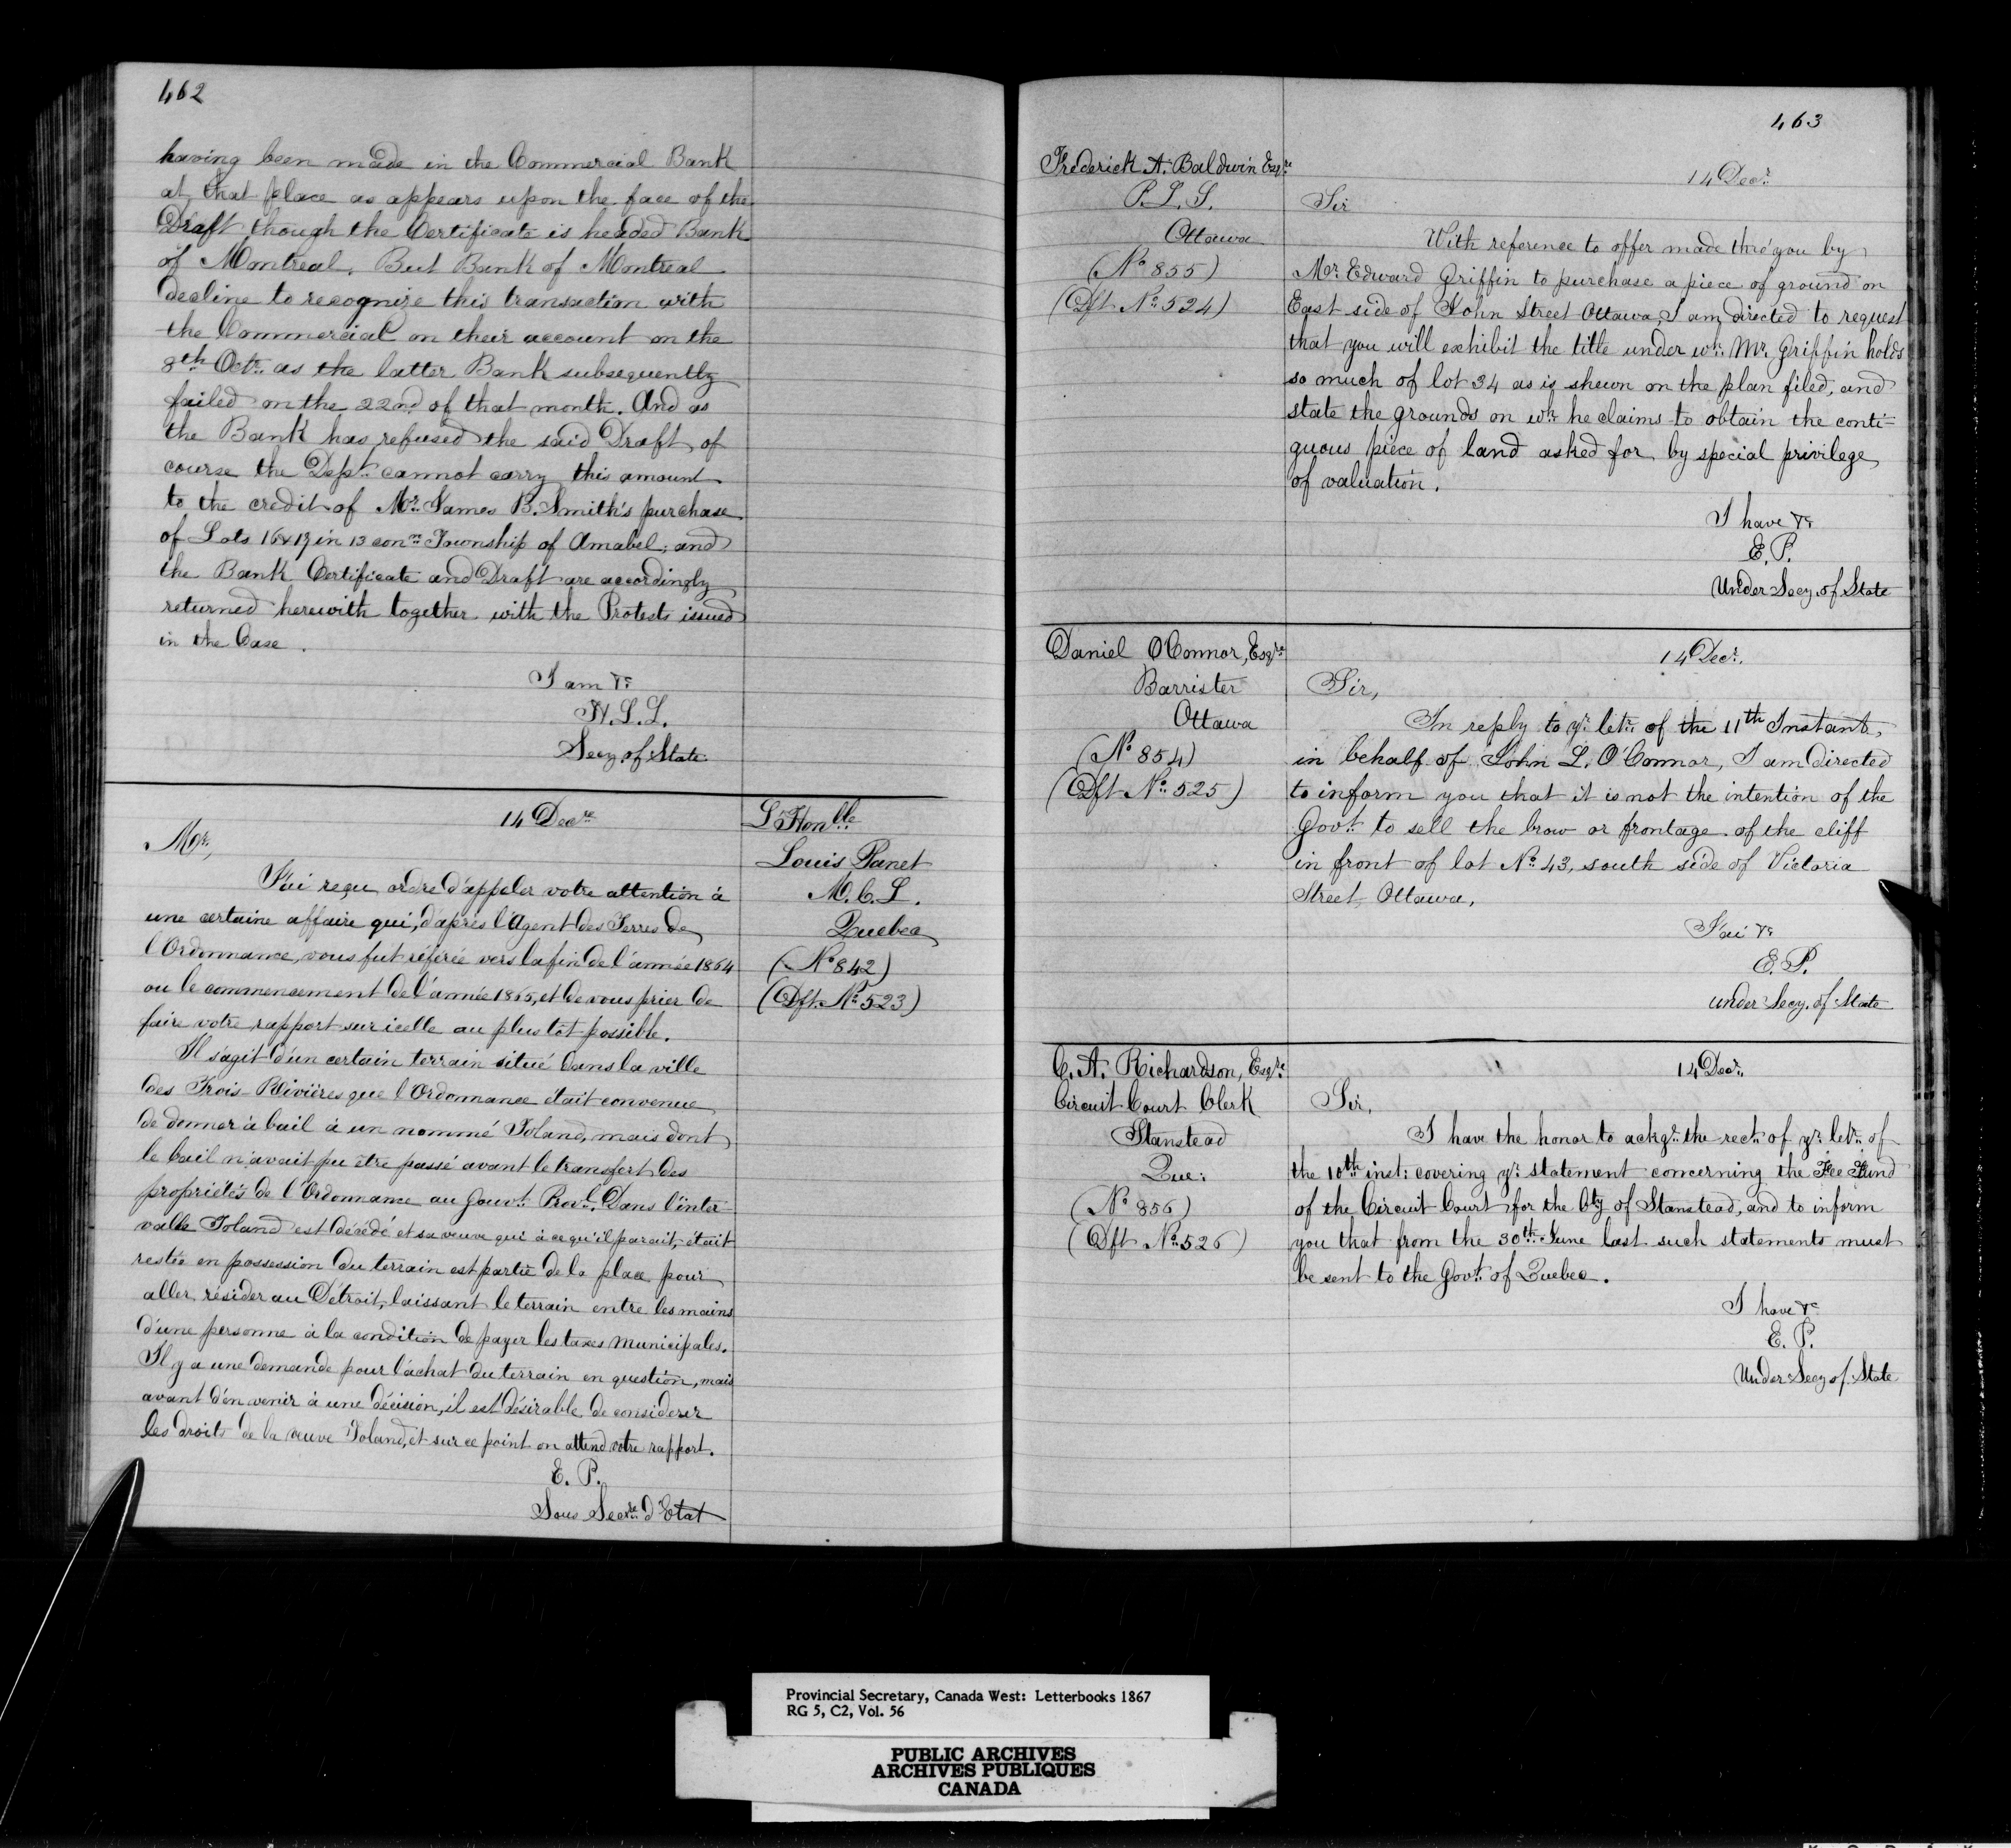 462
having been made in the Commercial Bank
at that place as appears upon the face of the
Draft though the Certificate is headed Bank
of Montreal. But Bank of Montreal
decline to recognize this transaction with
the Commercial on their account on the
8th Octr. as the latter Bank subsequently
failed on the 22nd of that month. And as
the Bank has refused the said Draft, of
course the Dept. cannot carry this amount
to the credit of Mr. James B. Smith's purchase
of Lots 16 & 17 in 13 conn. Township of Amabel; and
the Bank Certificate and Draft are accordingly
returned herewith together with the Protests issued
in the Case.
I am &c
H.L.L.
Secy. of State
14 Decre
Mr,
J'ai reçu ordre d'appeler votre attention à
une certaine affaire qui, d'après l'Agent des Terres de
l'Ordonnance, vous fut référée vers la fin de l'année 1864
ou le commencement de l'année 1865, et de vous prier de
faire votre rapport sur icelle au plus tôt possible.
Il s'agit d'un certain terrain situé dans la ville
des Trois-Rivières que l'Ordonnance était convenue
de donner à bail à un nommé Toland, mais dont
le bail n'avait pu être passé avant le transfert des
propriétés de l'Ordonnance au Gouvt. Provl. Dans l'inter
valle Toland est décédé et sa veuve qui à ce qu'il parait, était
restée en possession du terrain est partie de la place pour
aller résider au Détroit, laissant le terrain entre les mains
d'une personne à la condition de payer les taxes municipales.
Il y a une demande pour l'achat du terrain en question, mais
avant d'en venir à une décision, il est désirable de considerer
les droits de la veuve Toland, et sur ce point on attend votre rapport.
E. P.
Sous Secre. d'Etat
L'Honble
Louis Panet
M.C.L.
Quebec
(No 842)
(Dft. No. 523)
463
Frederick A. Baldwin Esqre
P.L.S.
Ottawa
(No 855)
(Dft No. 524)
14 Decr.
Sir
With reference to offer made thro' you by
Mr. Edward Griffin to purchase a piece of ground on
East side of John Street Ottawa, I am directed to request
that you will exhibit the title under wh: Mr. Griffin holds
so much of lot 34 as is shewn on the plan filed, and
state the grounds on wh: he claims to obtain the conti=
guous piece of land asked for by special privilege
of valuation.
I have &c
E.P.
Under Secy. of State
Daniel O'Connor, Esqre
Barrister
Ottawa
(No 854)
(Dft No. 525)
14 Decr.
Sir,
In reply to yr. letr. of the 11th Instant,
in behalf of John L. O'Connor, I am directed
to inform you that it is not the intention of the
Govt. to sell the brow or frontage of the cliff
in front of lot No. 43, south side of Victoria
Street, Ottawa.
J'ai &c
E.P.
under Secy. of State
C. A. Richardson, Esqre
Circuit Court Clerk
Stanstead
Que:
(No 856)
(Dft No. 526)
14 Decr.
Sir,
I have the honor to ackge. the rect. of yr. letr. of
the 10th inst: covering yr. statement concerning the Fee Fund
of the Circuit Court for the Cty of Stanstead, and to inform
you that from the 30th June last such statements must
be sent to the Govt. of Quebec.
I have &c
E. P.
Under Secy of State
Provincial Secretary, Canada West: Letterbooks 1867
RG 5, C2, Vol. 56
PUBLIC ARCHIVES
ARCHIVES PUBLIQUES
CANADA